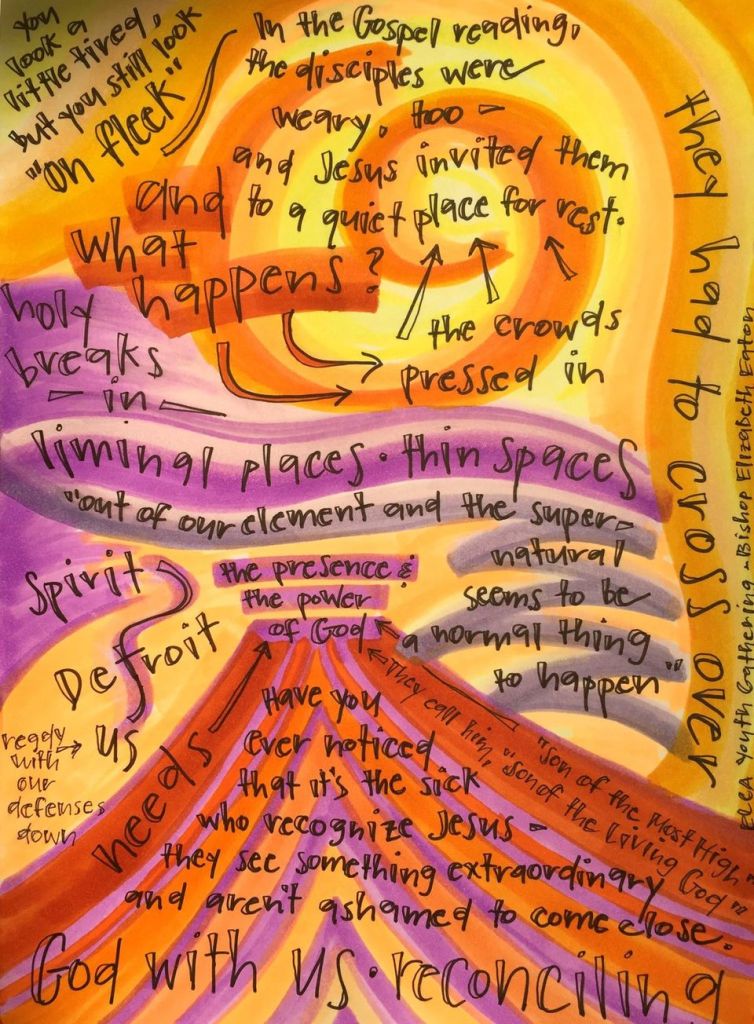 you
look a
little tired,
but you still look
"on fleek"
In the Gospel reading,
the disciples were
weary, too -
and Jesus invited them
to a quiet place for rest.
and
what
happens?
the crowds
pressed in
they had to cross over
holy
breaks
- in -
liminal places · thin spaces
"out of our element and the super-
natural
seems to be
a normal thing
to happen"
Spirit
Detroit
us
ready
with
our
defenses
down
the presence &
the power
of God
needs
They call him, "son of the Most High"
"son of the Living God"
Have you
ever noticed
that it's the sick
who recognize Jesus -
they see something extraordinary
and aren't ashamed to come close.
God with us · reconciling
ELCA Youth Gathering ~ Bishop Elizabeth Eaton